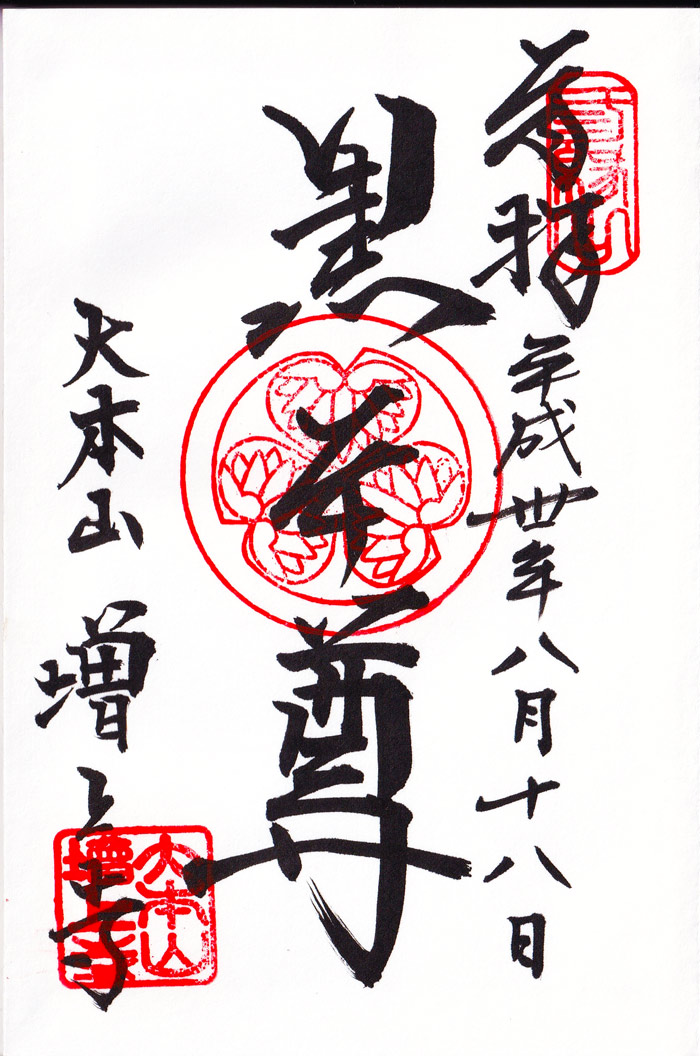 奉拝 平成卅年八月十八日
黒本尊
大本山 増上寺
大本山
增上寺